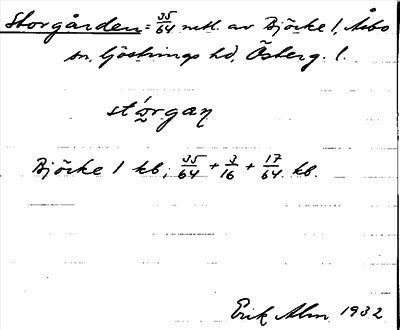 Storgården = 35/64 mtl. av Björke 1, Åsbo
sn, Göstrings hd, Österg. l.
stǫ́rgan
Björke 1 kb; 35/64 + 3/16 + 17/64 kb.
Erik Alm 1932